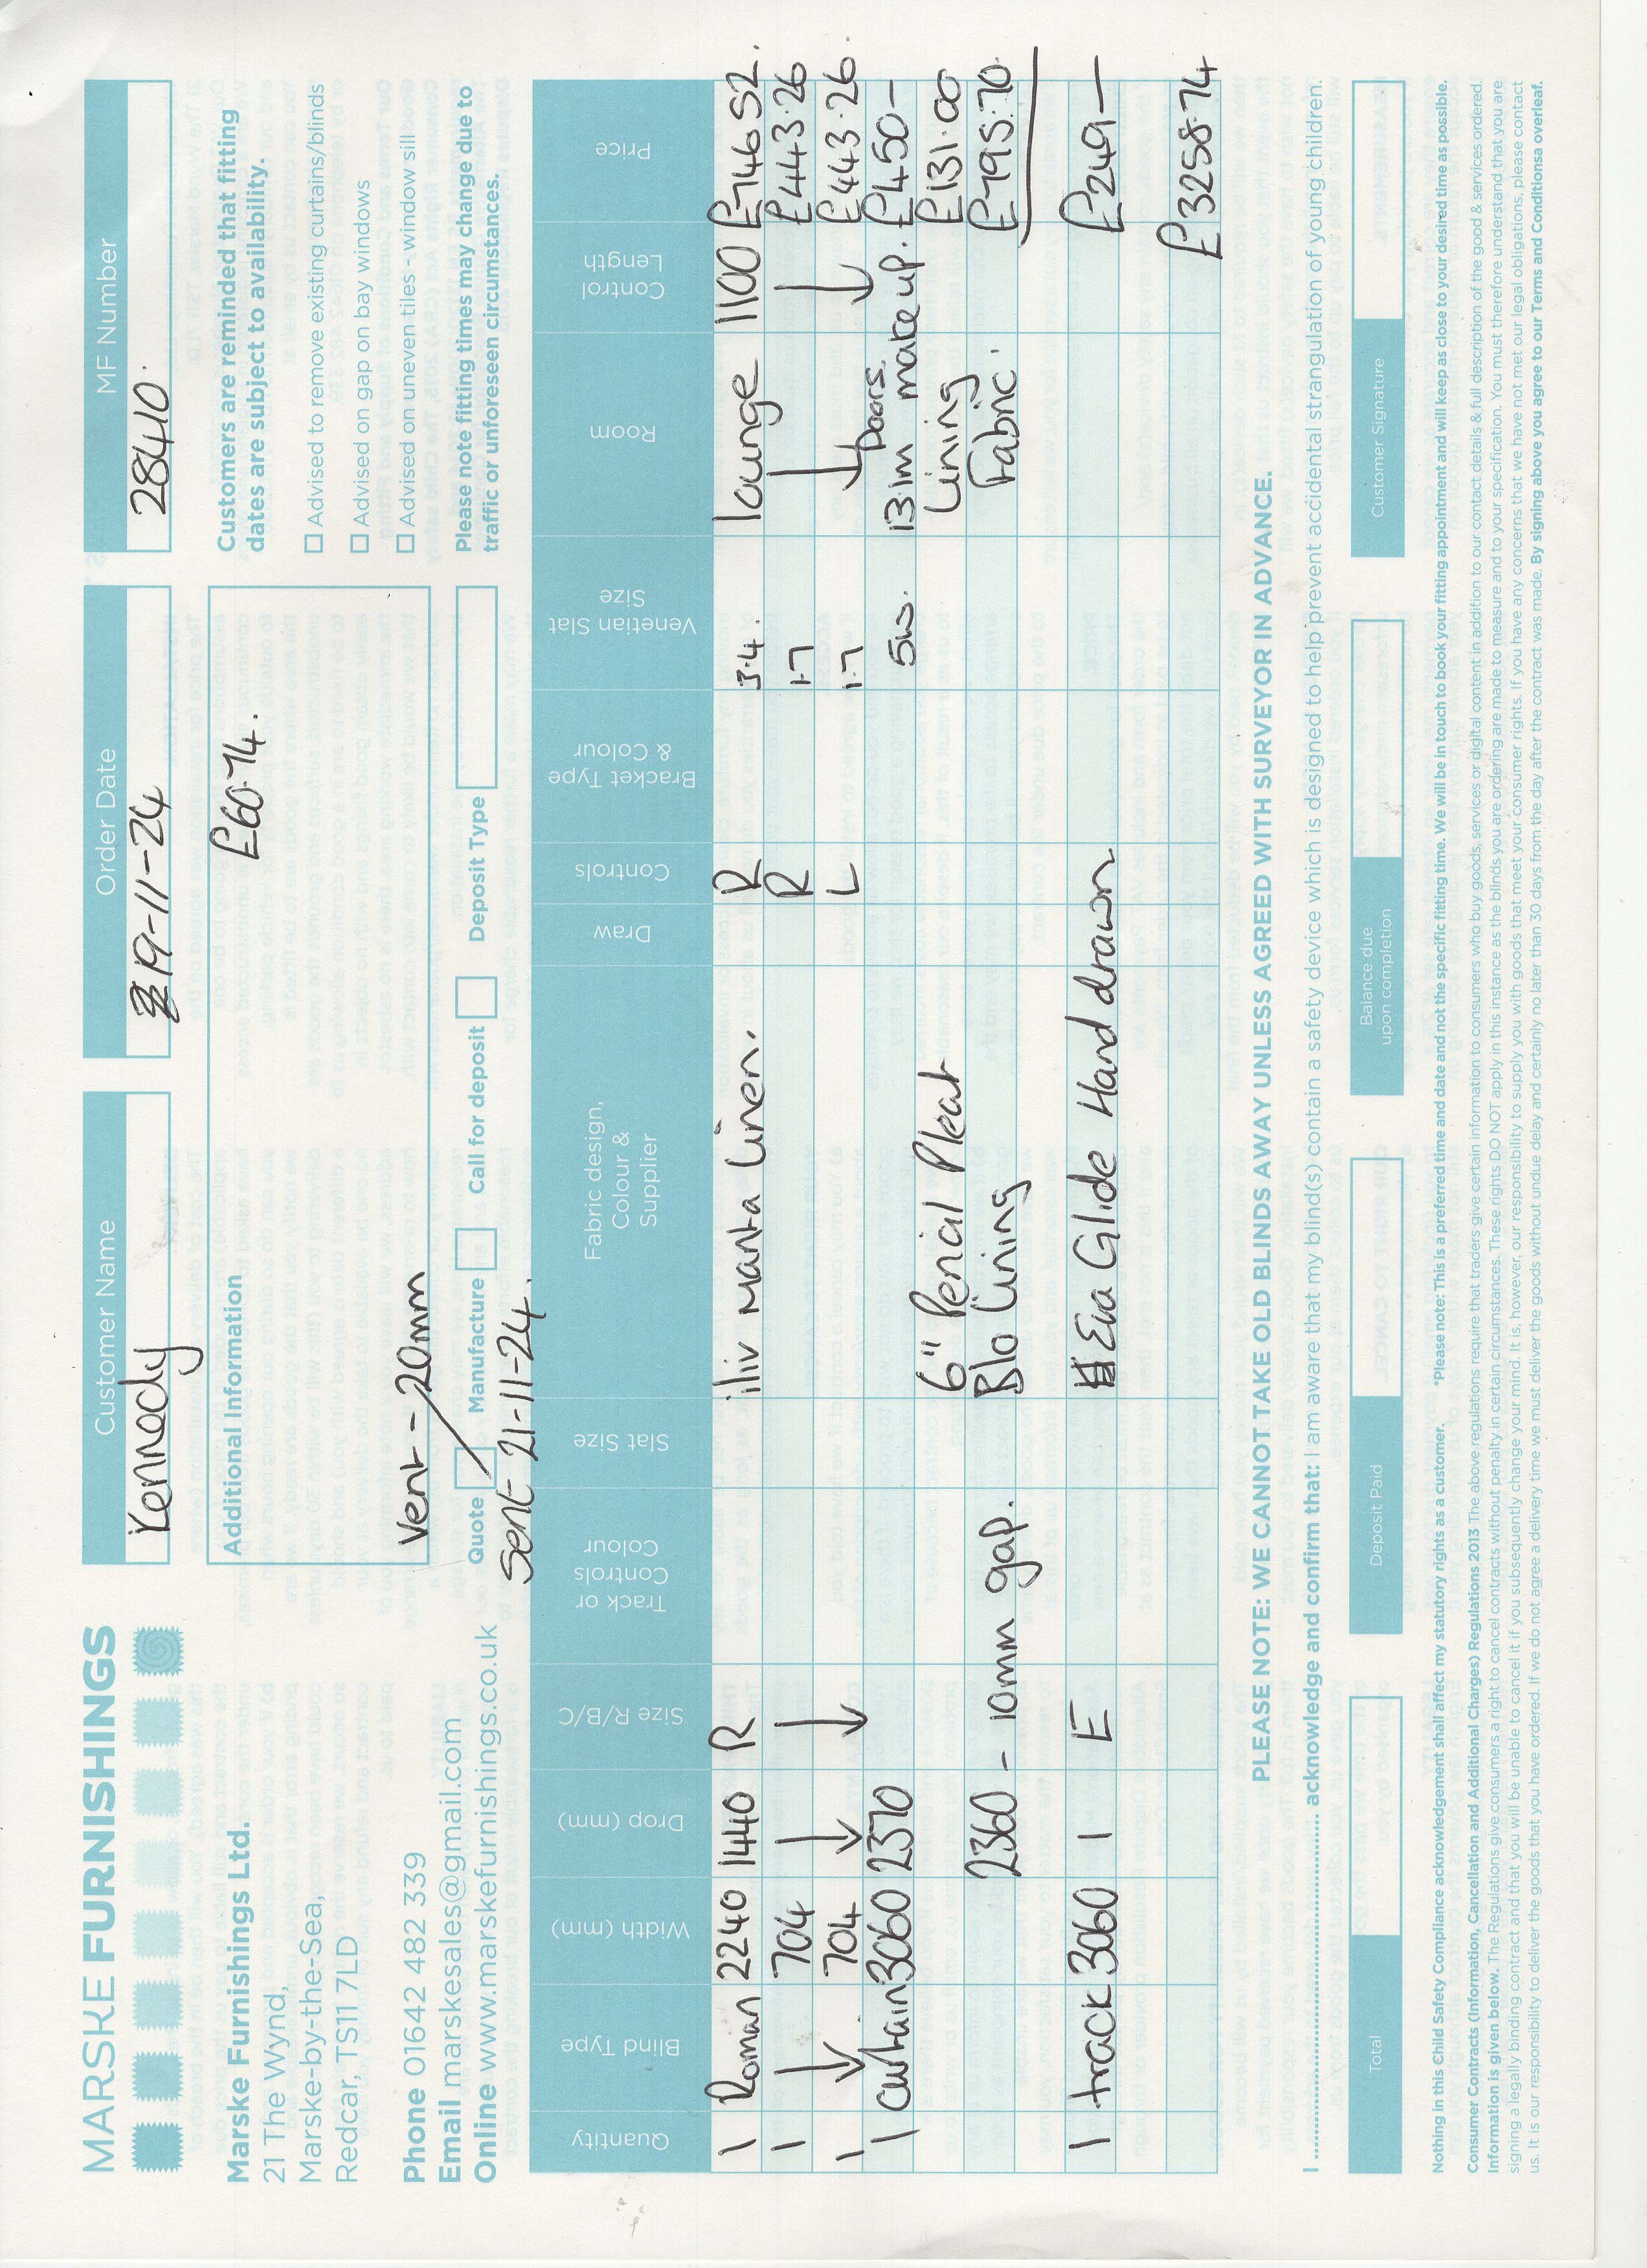 MARSKE FURNISHINGS
Marske Furnishings Ltd.
21 The Wynd,
Marske-by-the-Sea,
Redcar, TS11 7LD
Phone 01642 482 339
Email marskesales@gmail.com
Online www.marskefurnishings.co.uk
Customer Name
Kennedy
Order Date
19-11-24
MF Number
28410.
Additional Information
£60.74.
Vent - 20mm
Customers are reminded that fitting
dates are subject to availability.
Advised to remove existing curtains/blinds
Advised on gap on bay windows
Advised on uneven tiles - window sill
Please note fitting times may change due to
traffic or unforeseen circumstances.
Quote Manufacture Call for deposit Deposit Type
Sent 21-11-24.
Quantity Blind Type Width (mm) Drop (mm) Size R/B/C Track or Controls Colour Slat Size Fabric design, Colour & Supplier Draw Controls Bracket Type & Colour Venetian Slat Size Room Control Length Price
1 Roman 2240 1440 R iliv Manta Linen. R 3.4. lounge 1100 £746 52.
1 704 R 1.7 £443.26
1 704 L 1.7 £443.26.
1 Curtain 3060 2370 5w. Doors. 13.1m make up. £450 —
6" Pencil Pleat Lining £131.00
2360 - 10mm gap. Blo lining Fabric. £795.70
1 track 3060 1 E Eva Glide Hand drawn £249 —
£3258.74
PLEASE NOTE: WE CANNOT TAKE OLD BLINDS AWAY UNLESS AGREED WITH SURVEYOR IN ADVANCE.
I .................... acknowledge and confirm that: I am aware that my blind(s) contain a safety device which is designed to help prevent accidental strangulation of young children.
Total
Deposit Paid
Balance due
upon completion
Customer Signature
Nothing in this Child Safety Compliance acknowledgement shall affect my statutory rights as a customer. *Please note: This is a preferred time and date and not the specific fitting time. We will be in touch to book your fitting appointment and will keep as close to your desired time as possible.
Consumer Contracts (Information, Cancellation and Additional Charges) Regulations 2013 The above regulations require that traders give certain information to consumers who buy goods, services or digital content in addition to our contact details & full description of the good & services ordered.
Information is given below. The Regulations give consumers a right to cancel contracts without penalty in certain circumstances. These rights DO NOT apply in this instance as the blinds you are ordering are made to measure and to your specification. You must therefore understand that you are
signing a legally binding contract and that you will be unable to cancel it if you subsequently change your mind. It is, however, our responsibility to supply you with goods that meet your consumer rights. If you have any concerns that we have not met our legal obligations, please contact
us. It is our responsibility to deliver the goods that you have ordered. If we do not agree a delivery time we must deliver the goods without undue delay and certainly no later than 30 days from the day after the contract was made. By signing above you agree to our Terms and Conditionsa overleaf.